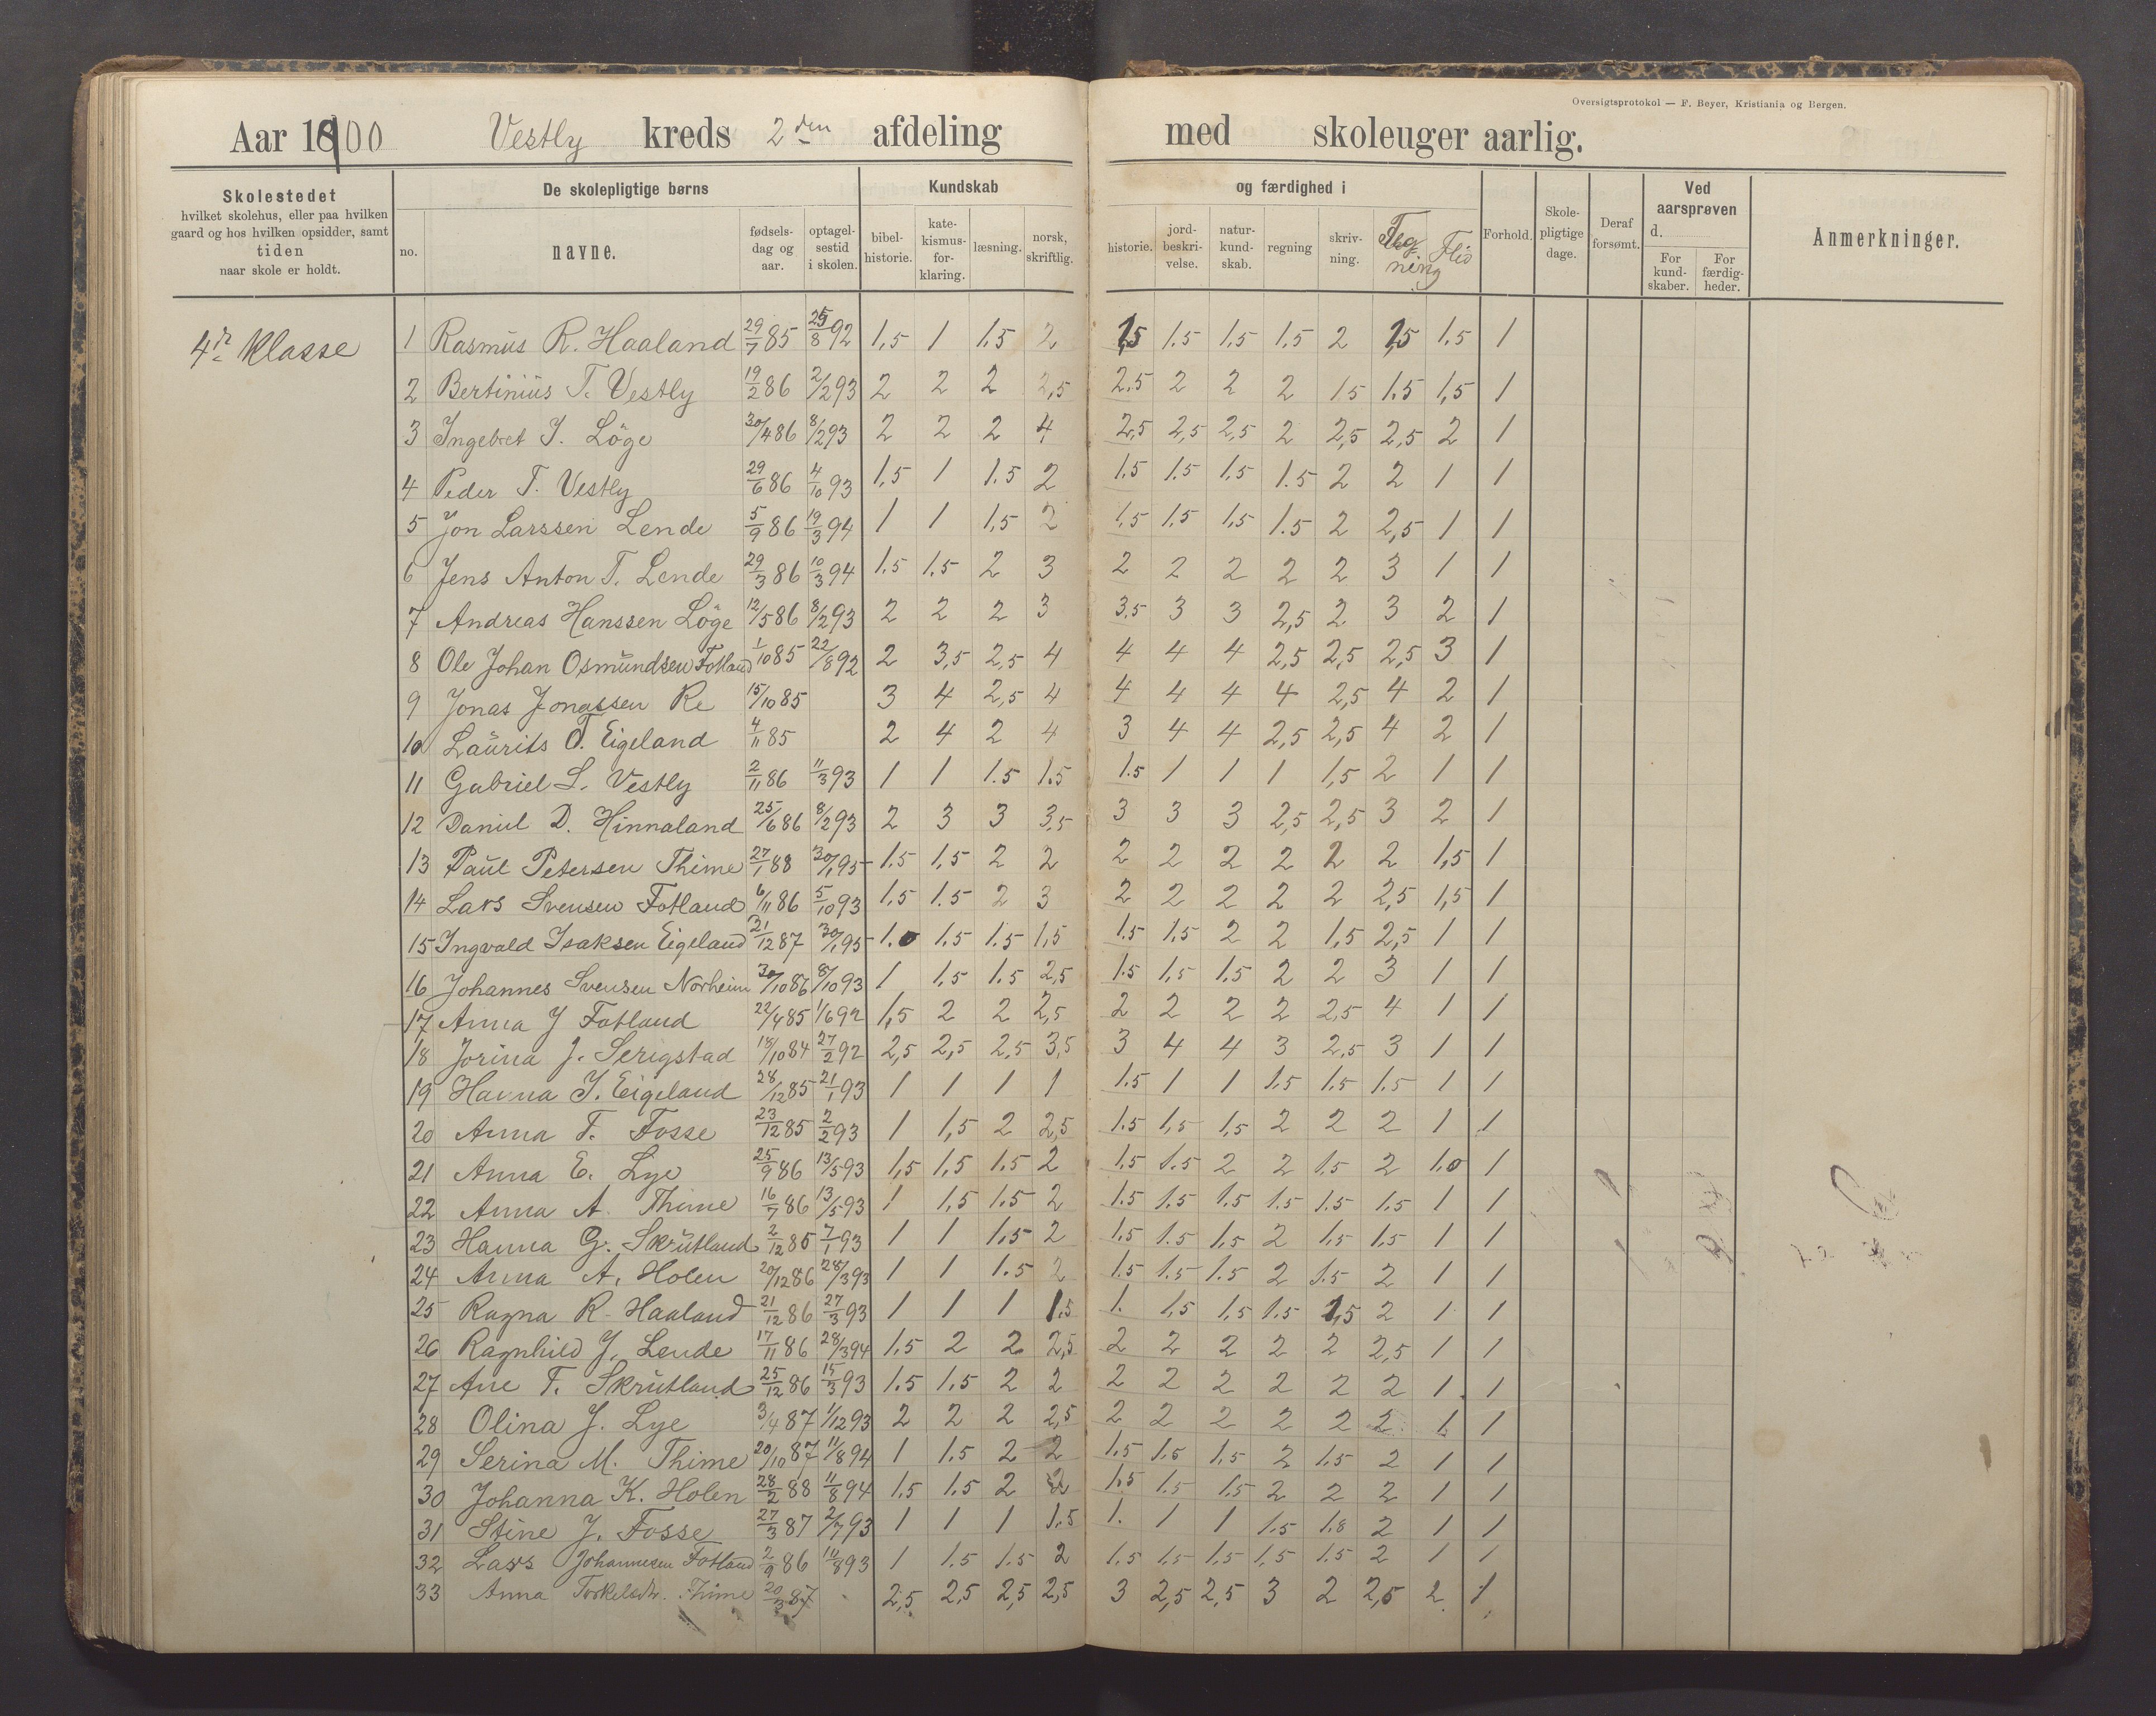 Oversigtsprotokol — F. Beyer, Kristiania og Bergen.
Aar 1900 Vestly kreds 2den afdeling med skoleuger aarlig.
Skolestedet
hvilket skolehus, eller paa hvilken
gaard og hos hvilken opsidder, samt
tiden
naar skole er holdt.
De skolepligtige børns
no.
navne.
fødsels-
dag og
aar.
optagel-
sestid
i skolen.
Kundskab
bibel-
historie.
kate-
kismus-
for-
klaring.
læsning.
norsk,
skriftlig.
og færdighed i
historie.
jord-
beskri-
velse.
natur-
kund-
skab.
regning
skriv-
ning.
Teg
ning
Flid
Forhold.
Skole-
pligtige
dage.
Deraf
forsømt.
Ved
aarsprøven
d.
For
kund-
skaber.
For
færdig-
heder.
Anmerkninger.
4de Klasse
1 Rasmus R. Haaland 29/7 85 25/8 92 1,5 1 1.5 2 1,5 1.5 1.5 1.5 2 1,5 1.5 1
2 Bertinius T. Vestly 19/2 86 2/2 93 2 2 2 2,5 2.5 2 2 2 1.5 1.5 1,5 1
3 Ingebret J. Löge 30/4 86 8/2 93 2 2 2 4 2,5 2,5 2,5 2 2,5 2,5 2 1
4 Peder T. Vestly 29/6 86 4/10 93 1,5 1 1.5 2 1.5 1.5 1.5 1.5 2 2 1 1
5 Jon Larssen Lende 5/9 86 19/3 94 1 1 1,5 2 1,5 1,5 1,5 1.5 2 2,5 1 1
6 Jens Anton T. Lende 29/3 86 10/3 94 1.5 1.5 2 3 2 2 2 2 2 3 1 1
7 Andreas Hanssen Löge 12/5 86 8/2 93 2 2 2 3 3,5 3 3 2,5 2 3 2 1
8 Ole Johan Osmundsen Fotland 1/10 85 22/8 92 2 3,5 2,5 4 4 4 4 2,5 2,5 2,5 3 1
9 Jonas Jonassen Re 15/10 85 3 4 2,5 4 4 4 4 4 2,5 4 2 1
10 Laurits O. Eigeland 4/11 85 2 4 2 4 3 4 4 2,5 2,5 4 2 1
11 Gabriel L. Vestly 2/11 86 11/3 93 1 1 1.5 1.5 1.5 1 1 1 1,5 2 1 1
12 Daniel D. Hinnaland 25/6 86 8/2 93 2 3 3 3,5 3 3 3 2,5 2,5 3 2 1
13 Paul Petersen Thime 27/1 88 30/1 95 1.5 1,5 2 2 2 2 2 2 2 2 1,5 1
14 Lars Svensen Fotland 6/11 86 5/10 93 1.5 1.5 2 3 2 2 2 2 2 2,5 1,5 1
15 Ingvald Isaksen Eigeland 21/12 87 30/1 95 1.0 1.5 1.5 1,5 1.5 1.5 2 2 1,5 2,5 1 1
16 Johannes Svensen Norheim 30/10 86 8/10 93 1 1,5 1.5 2,5 1.5 1,5 1.5 2 2 3 1 1
17 Anna J Fotland 22/4 85 1/6 92 1,5 2 2 2,5 2 2 2 2 2,5 4 1 1
18 Jorina J. Serigstad 18/10 84 27/2 92 2,5 2,5 2,5 3,5 3 4 4 3 2,5 3 1 1
19 Hanna J. Eigeland 28/12 85 21/1 93 1 1 1 1 1.5 1 1 1.5 1.5 1.5 1 1
20 Anna T. Fosse 23/12 85 2/2 93 1 1,5 2 2,5 1.5 1,5 1,5 2 2 2 1 1
21 Anna E. Lye 25/9 86 13/5 93 1,5 1,5 1.5 2 1.5 1.5 2 2 1.5 2 1.0 1
22 Anna A. Thime 16/7 86 13/5 93 1 1,5 1.5 2 1.5 1.5 1.5 1.5 1.5 1.5 1 1
23 Hanna G. Skrutland 2/12 85 7/1 93 1 1 1,5 2 1.5 1.5 1,5 2 1.5 1,5 1 1
24 Anna A. Holen 20/12 86 28/3 93 1 1 1.5 2 1.5 1.5 1.5 2 1.5 2 1 1
25 Ragna R. Haaland 21/12 86 27/3 93 1 1 1 1.5 1. 1,5 1,5 1.5 1,5 2 1 1
26 Ragnhild J. Lende 17/11 86 28/3 94 1,5 2 2 2,5 2 2 2 2 2 2,5 1 1
27 Ane T. Skrutland 25/12 86 15/3 93 1.5 1,5 2 2 2 2 2 2 2 2 1 1
28 Olina J. Lye 3/4 87 1/12 93 2 2 2 2,5 2 2 2 2 2 2 1 1
29 Serina M. Thime 20/10 87 11/8 94 1 1,5 2 2 1.5 1.5 1,5 2 1.5 2 1 1
30 Johanna K. Holen 28/2 88 11/8 94 1.5 1.5 2 2 1.5 1.5 1.5 2 2 2 1 1
31 Stine J. Fosse 27/3 87 2/7 93 1 1 1 1.5 1. 1 1 1.5 1.8 2 1 1
32 Lars Johannesen Fotland 2/9 86 10/8 93 1 1,5 1.5 2 1.5 1.5 1,5 1,5 1.5 2 1 1
33 Anna Torkelsdtr. Thime 20/3 87 2,5 2,5 2,5 2,5 3 2,5 2,5 3 2 2,5 2 1